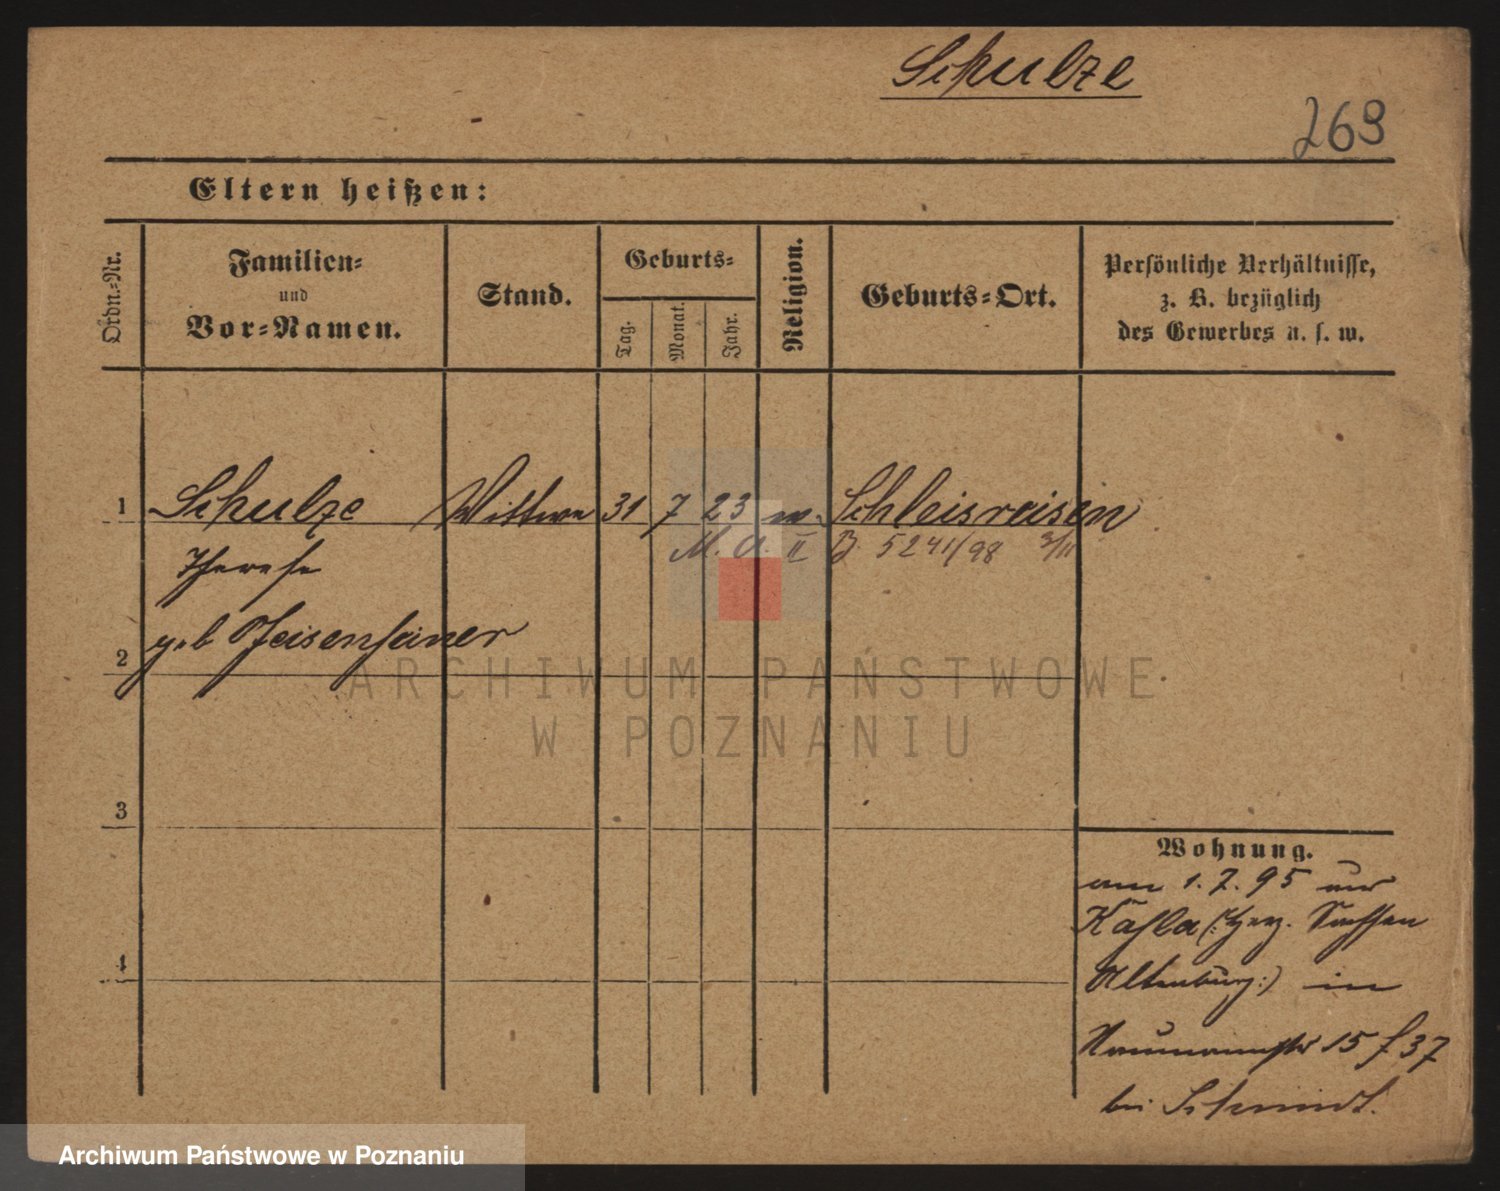 Schulze
269
Eltern heißen:
Ordn.-Nr.
Familien-
und
Vor-Namen.
Stand.
Geburts-
Tag.
Monat.
Jahr.
Religion.
Geburts-Ort.
Persönliche Verhältnisse,
z. B. bezüglich
des Gewerbes u. s. w.
1 Schulze Wittwe 31 7 23 ev. Schleisreisen
M. A. II B. 5241/98 3/11
Therese
2 geb
3
4
Wohnung.
am 1.7.95 aus
Kahla (: Herz. Sachsen
Altenburg :) in
Naumannstr 15 f 37
bei Schmidt.
ARCHIWUM PAŃSTWOWE
W POZNANIU
Archiwum Państwowe w Poznaniu